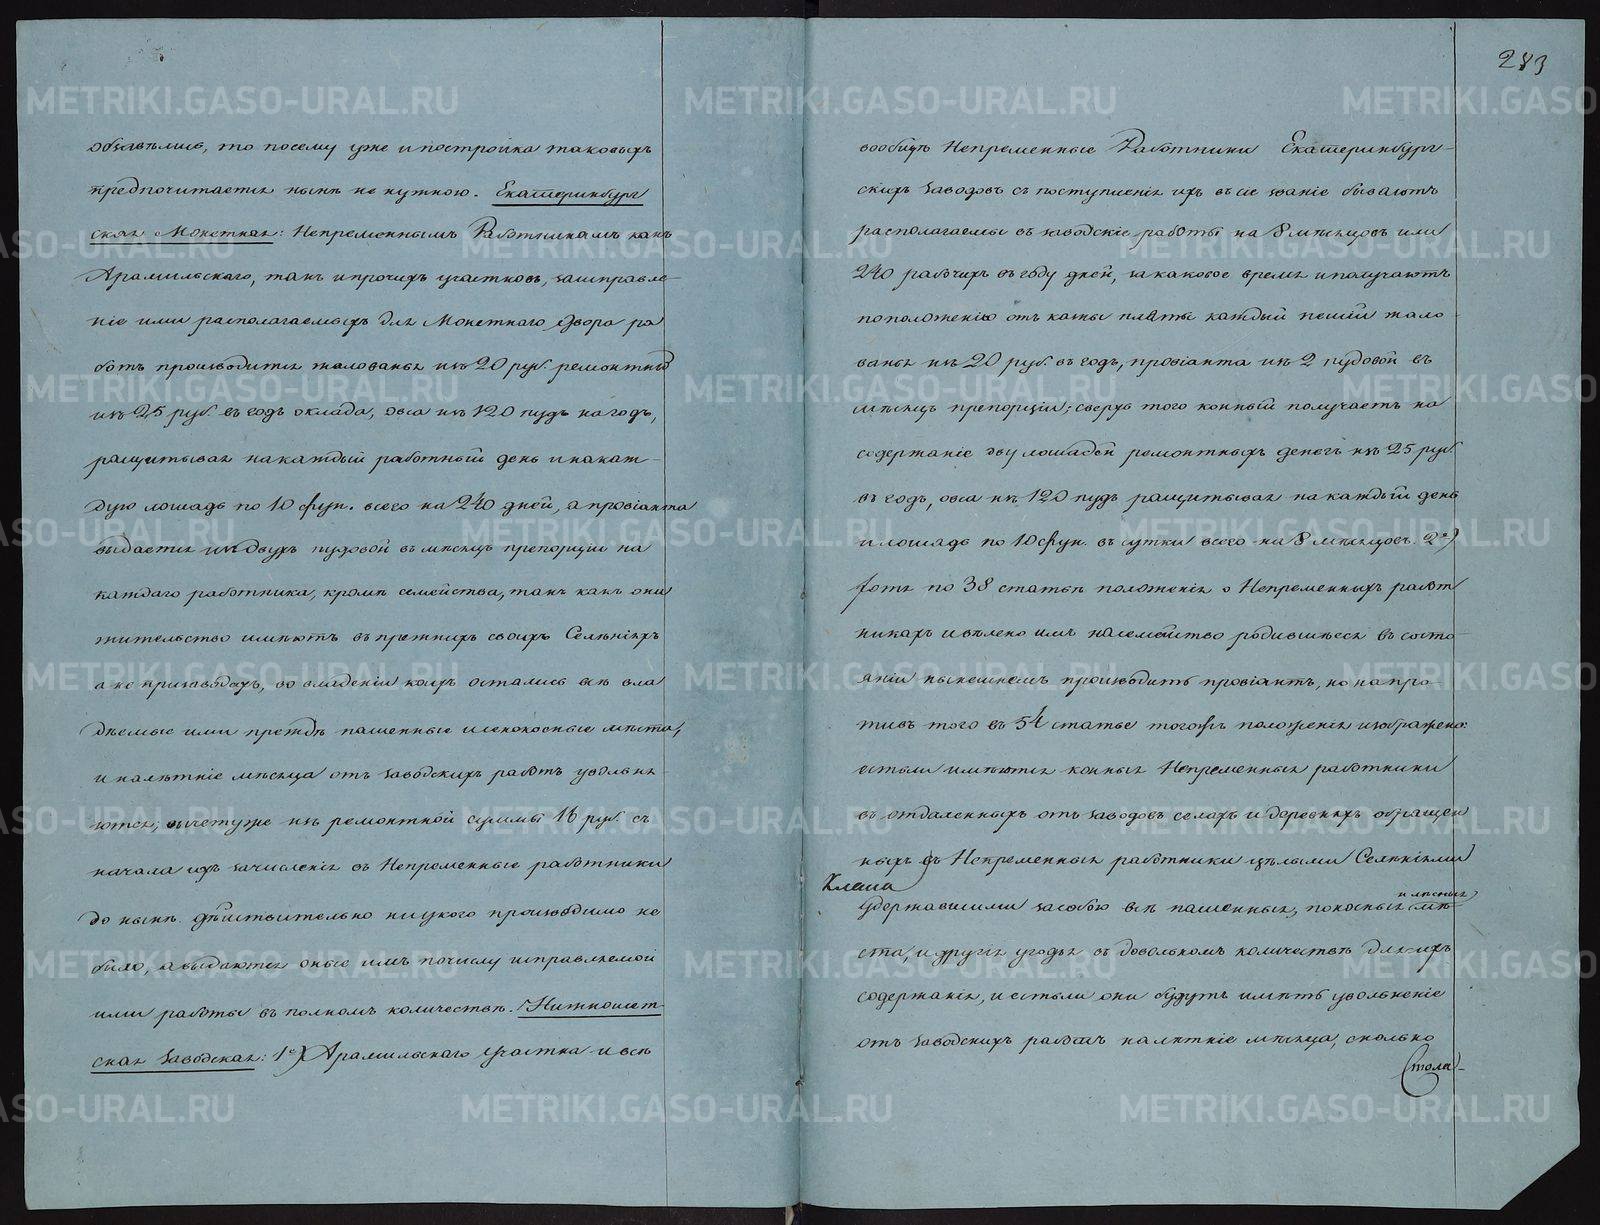 объявились, то посему уже и постройка таковыхъ
предпочитается нынѣ не нужною. Екатеринбург
ская Монетная: Непременнымъ Работникамъ какъ
Арамильскаго, такъ и прочихъ участковъ, заисправле-
ніе ими располагаемыхъ для Монетнаго двора ра
ботъ производится жалованье изъ 20 руб. ремонтныхъ
изъ 25 руб. въ годъ оклада, овса изъ 120 пудъ на годъ,
ращитывая на каждый работный день и на каж-
дую лошадь по 10 фун. всего на 240 дней, а провіанта
выдается изъ двухъ пудовой въ мѣсяцъ препорціи на
каждаго работника, кромѣ семейства, такъ какъ они
жительство имѣютъ въ прежнихъ своихъ Селеніяхъ
а не призаводахъ, во владеніи коихъ остались всѣ вла
дѣемые ими прежде пашенные и сенокосные мѣста,
и на лѣтніе мѣсяца отъ заводскихъ работъ увольня-
ются; вычету же изъ ремонтной суммы 16 руб. съ
начала ихъ зачисленія въ Непременные работники
до нынѣ действительно ни укого производимо не
было, а выдаются оные имъ по числу исправляемой
ими работы въ полномъ количествѣ. Нижноисет-
ская Заводская: 1е) Арамильскаго участка и всѣ
283
вообще Непременные Работники Екатеринбург-
скихъ заводовъ съ поступленія ихъ въ сіе званіе бываютъ
располагаемы въ заводскіе работы на 8 мѣсяцовъ или
240 рабочихъ въ году дней, за каковое время и получаютъ
по положенію отъ казны платы каждый пешій жало-
ванья изъ 20 руб. въ годъ, провіанта изъ 2 пудовой въ
мѣсяцъ препорціи; сверхъ того конный получаетъ на
содержаніе дву лошадей ремонтныхъ денегъ изъ 25 руб.
въ годъ, овса изъ 120 пудъ ращитывая на каждый день
и лошадь по 10 фун. въ сутки всего на 8 мѣсяцовъ. 2е)
Хотя по 38 статьѣ положенія о Непременныхъ работ
никахъ и велено имъ на семейство родившееся въ состо-
яніи нынешнемъ производить провіантъ, но напро-
тивъ того въ 54 статье тогожъ положенія изображено:
естьли имѣются конныя Непременныя работники
въ отдаленныхъ отъ заводовъ селахъ и деревняхъ обращен
ныхъ въ Непременныя работники цѣлыми Селеніями
удержавшими за собою всѣ пашенныя, покосныя и лѣсныя мѣ-
ста, и другія угодья въ довольномъ количествѣ для ихъ
содержанія, и естьли они будутъ имѣть увольненіе
отъ заводскихъ работъ на лѣтніе мѣсяца, сколько
Стола-
METRIKI.GASO-URAL.RU